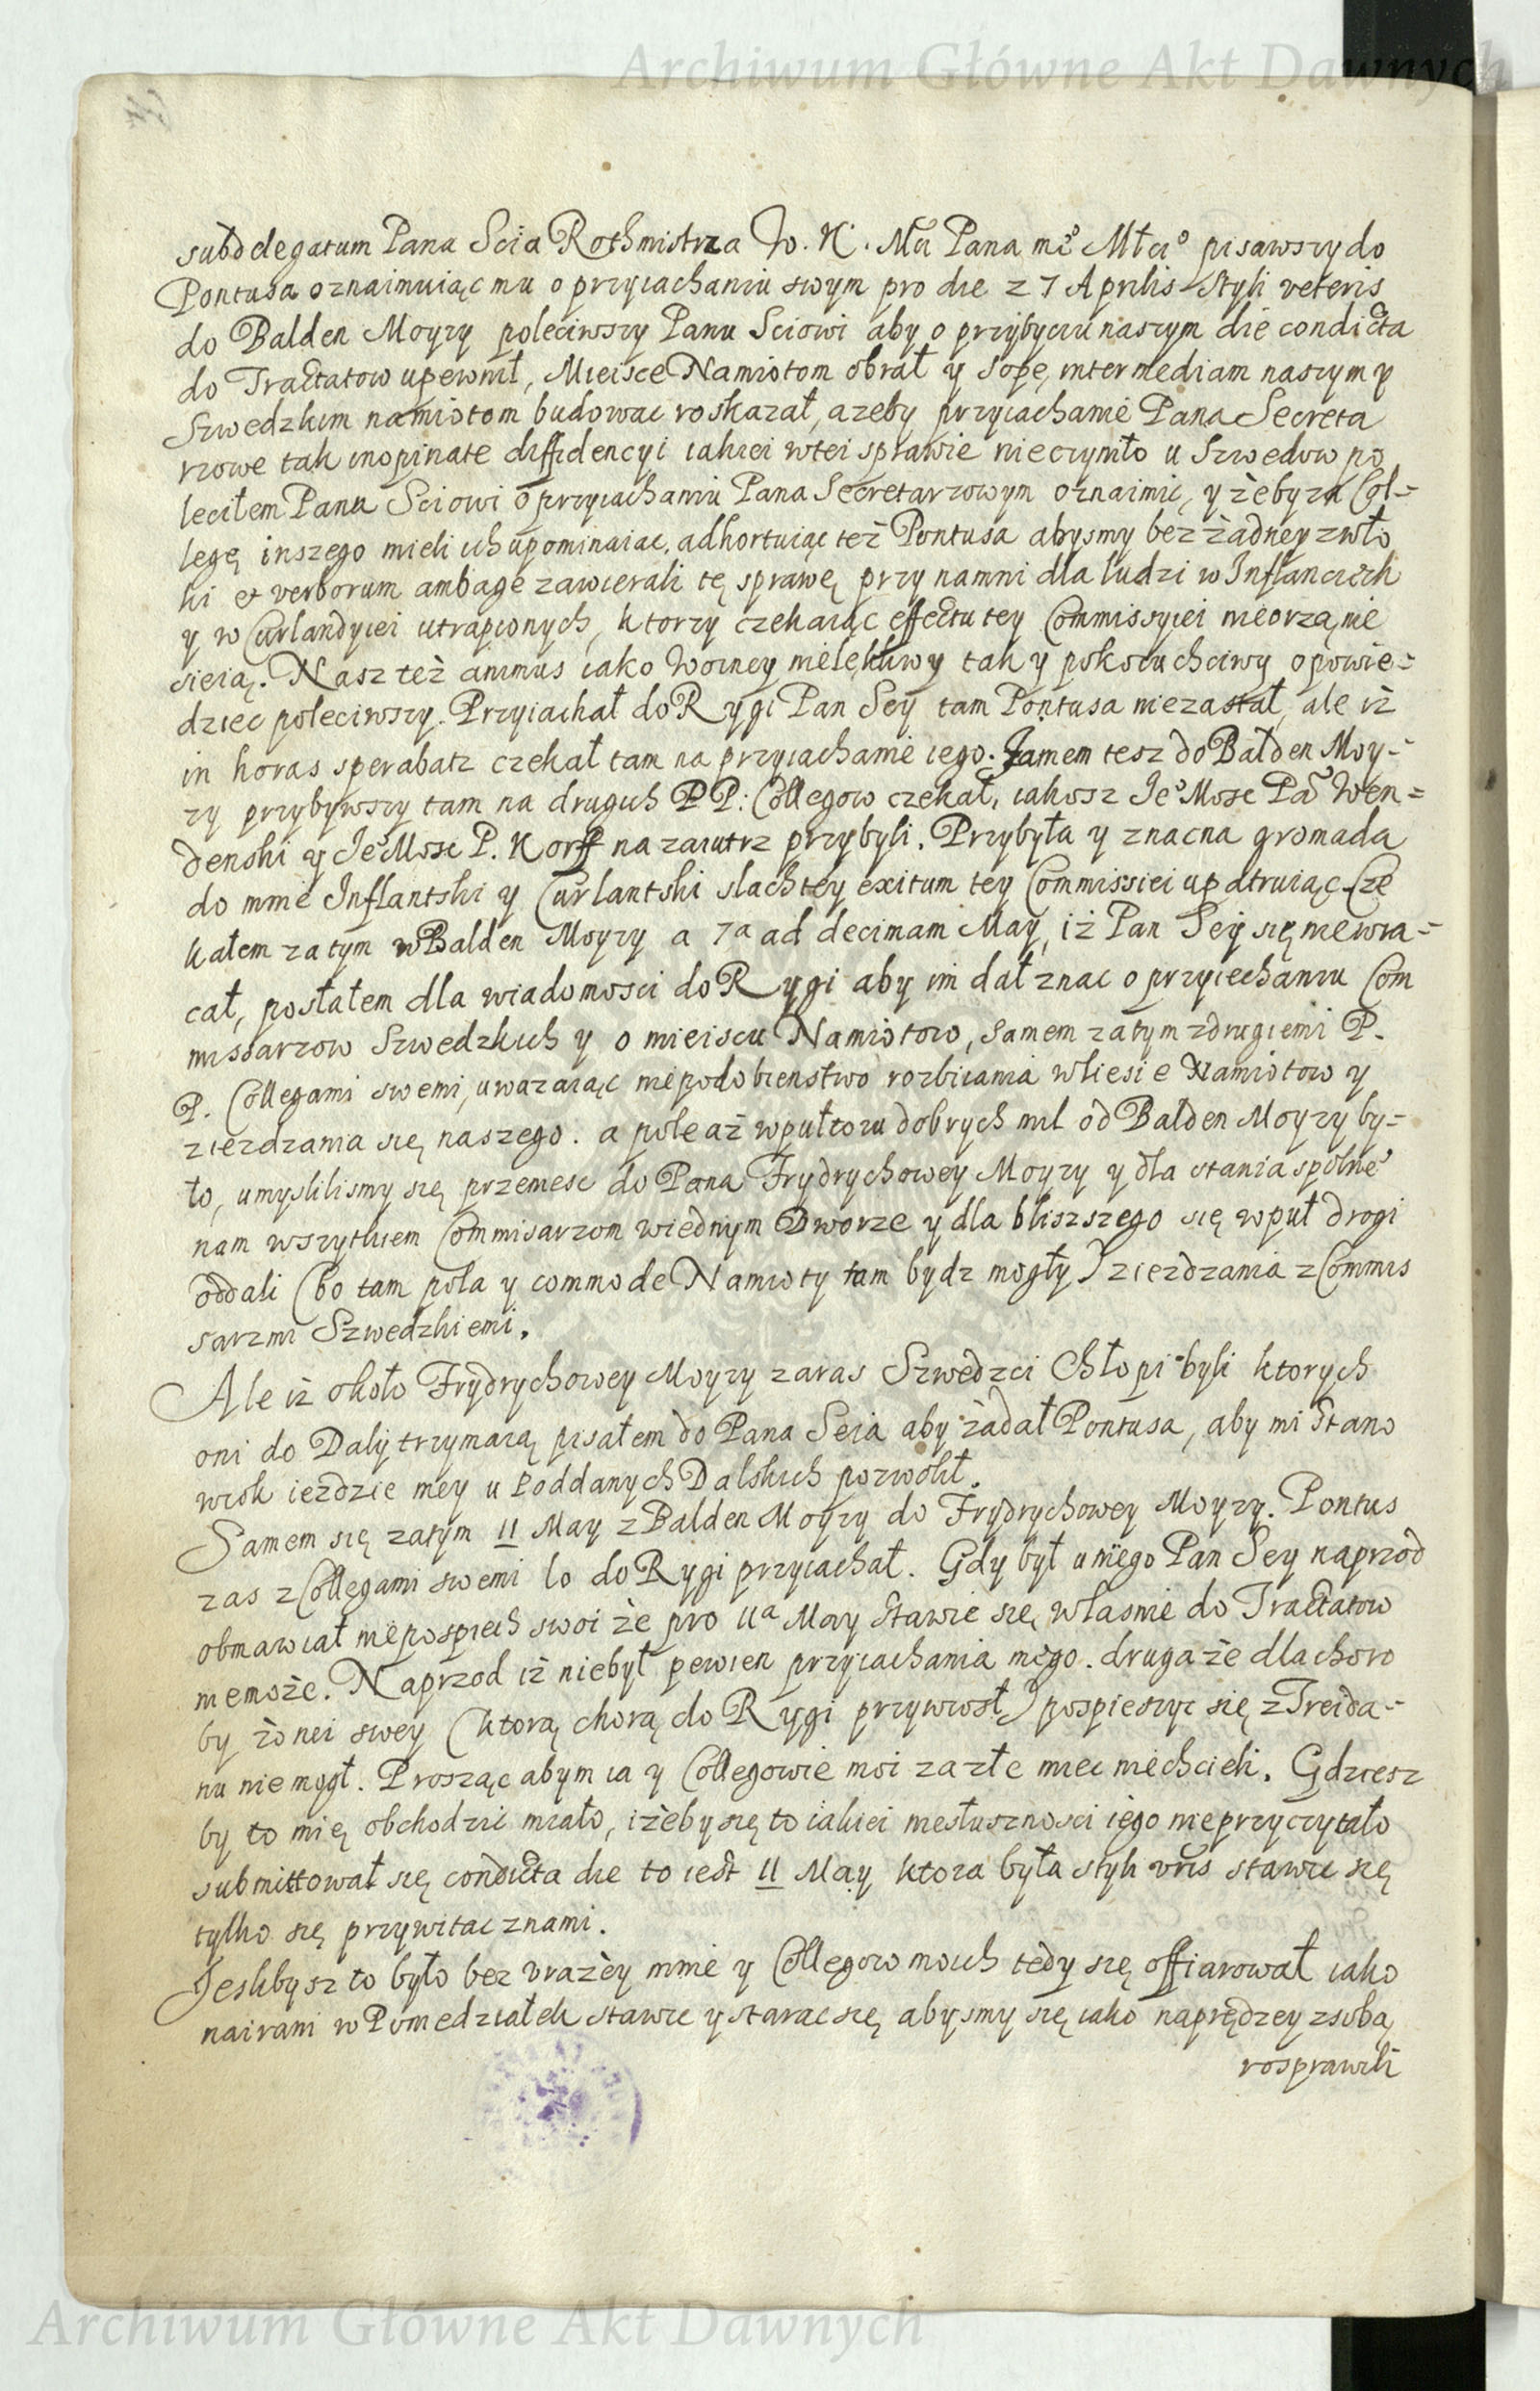 Archiwum Główne Akt Dawnych
subdelegatum Pana Scia Rothmistrza W. K. Mći Pana mẽ° Młci° pisawszy do
Pontusa oznaimuiąc mu o przyiachaniu swym pro die 27 Aprilis Styli veteris
do Balden Moyzy poleciwszy Panu Sciowi aby o przybyciu naszym die condicta
do Tractatow upewnił, Mieisce Namiotom obrał y sopę intermediam naszym y
Szwedzkim namiotom budowac roskazał, azeby przyiachanie Pana Secreta
rzowe tak inopinate diffidencyi iakiei wtei sprawie nieczyniło u Szwedow po
leciłem Panu Sciowi o przyiachaniu Pana Secretarzowym oznaimic, y żeby za Col=
legę inszego mieli ich upominaiac, adhortuiąc też Pontusa abysmy bez żadney zwło
ki et verborum ambage zawierali tę sprawę przynamni dla ludzi w Inflanciech
y w Curlandyiei utrapionych, ktorzy czekaiąc effectu tey Commissyiei nieorzą nie
sieią. Nasz też animus iako Woiney nielękliwy tak y pokoiu chciwy opowie=
dziec poleciwszy. Przyiachał do Rygi Pan Sey tam Pontusa niezastał, ale iż
in horas sperabatr czekał tam na przyiachanie iego. Jamem tesz do Balden Moy=
zy przybywszy tam na drugich PP: Collegow czekał, iakosz Je° Mosc Pã Wen=
denski y Je°Mosc P. Korff nazaiutrz przybyli. Przybyła y znacna gromada
do mnie Inflantski y Curlantski slachtey exitum tey Commissiei upatruiąc. Cze
kałem zatym w Balden Moyzy a 7a ad decimam May, iż Pan Sey się niewra=
cał, posłałem dla wiadomosci do Rygi aby im dał znac o przyiechaniu Com
missarzow Szwedzkich y o mieiscu Namiotow, Samem zatym zdrugiemi P.
P. Collegami swemi, uwazaiąc niepodobienstwo rozbiiania wliesie Namiotow y
ziezdzania się naszego. a pole aż wpułtoru dobrych mil od Balden Moyzy by=
ło, umyslilismy się przeniesc do Pana Frydrychowey Moyzy y dla stania spolne°
nam wszytkiem Commisarzom wiednym Dworze y dla bliszszego się wpuł drogi
oddali (bo tam pola y commode Namioty tam bydz mogły) ziezdzania z Commis
sarzmi Szwedzkiemi.
Ale iz około Frydrychowey Moyzy zaras Szwedzci Chłopi byli ktorych
oni do Dalij trzymaią pisałem do Pana Seia aby żadał Pontusa, aby mi Stano
wisk ieździe mey u Poddanych Dalskich pozwolił.
Samem się zatym 11 May z Balden Moyzy do Frydrychowey Moyzy. Pontus
zas z Collegami swemi 10 do Rygi przyiachał. Gdy był u niego Pan Sey naprzod
obmawiał niepospiech swoi że pro 11a May Stawic się własnie do Tractatow
niemoże. Naprzod iż niebył pewien przyiachania mego. druga że dla choro
by żonei swey (ktorą chorą do Rygi przywiosł) pospieszyc się z Treida=
nu nie mogł. Prosząc abym ia y Collegowie moi za złe miec niechcieli. Gdziesz
by to mię obchodzic miało, iżeby się to iakiei niesłusznosci iego nieprzyczytało
submittował się condicta die to iest 11 May ktora była styli vris stawic się
tylko się przywitac znami.
Jesliby sz to było bez vrazey mnie y Collegow moich tedy się offiarował iako
nairani w Poniedziałek stawic y starac się abysmy się iako naprędzey zsobą
rosprawili
Archiwum Główne Akt Dawnych